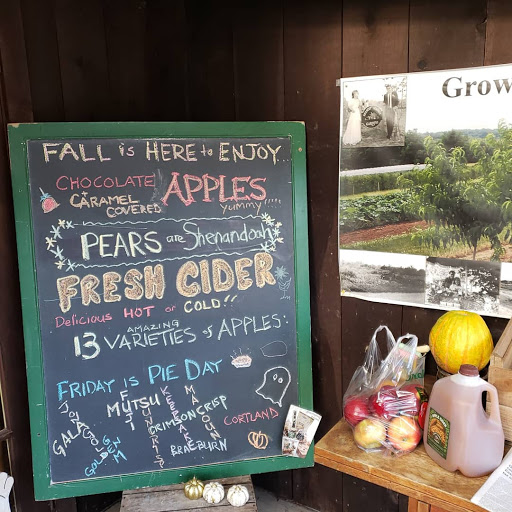 FALL is HERE to ENJOY...
CHOCOLATE
& CARAMEL
COVERED
APPLES
YUMMY!!!!
PEARS are Shenandoah
FRESH CIDER
Delicious HOT or COLD!!
AMAZING
13 VARIETIES of APPLES:
FRIDAY is PIE DAY
GALA
MUTSU
FUJI
SUNCRISP
CRIMSON CRISP
BRAEBURN
CORTLAND
Grow